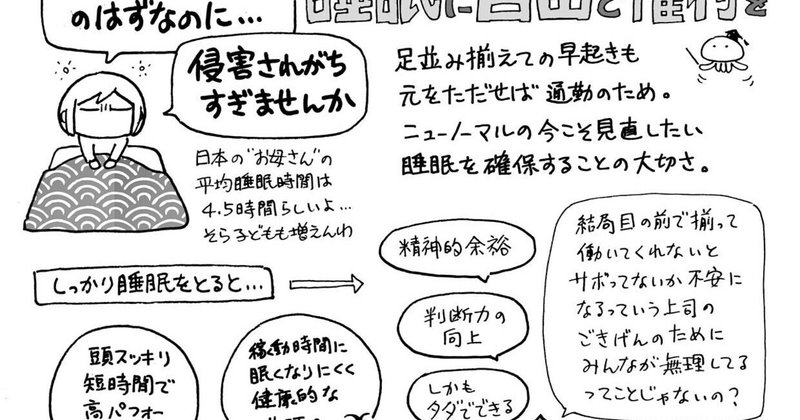 のはずなのに…
睡眠に自由と権利を
侵害されがち
すぎませんか
足並み揃えての早起きも
元をただせば通勤のため。
ニューノーマルの今こそ見直したい
睡眠を確保することの大切さ。
日本の"お母さん"の
平均睡眠時間は
4.5時間らしいよ…
そら子どもも増えんわ
しっかり睡眠をとると…
頭スッキリ
短時間で
高パフォー
稼働時間に
眠くなりにくく
健康的な
精神的余裕
判断力の
向上
しかも
タダでできる
結局目の前で揃って
働いてくれないと
サボってないか不安に
なるっていう上司の
ごきげんのために
みんなが無理してる
ってことじゃないの?